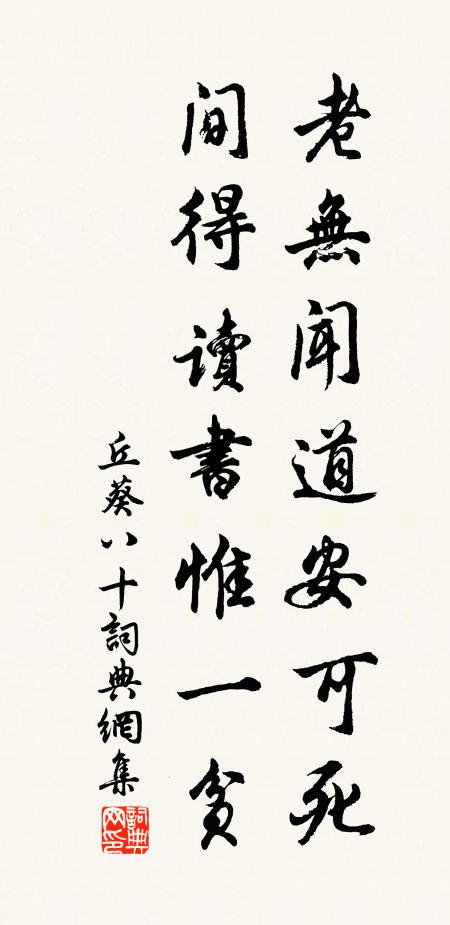 老無聞道安可死
间得讀書惟一貧
丘葵八十詞典網集
詞典网印